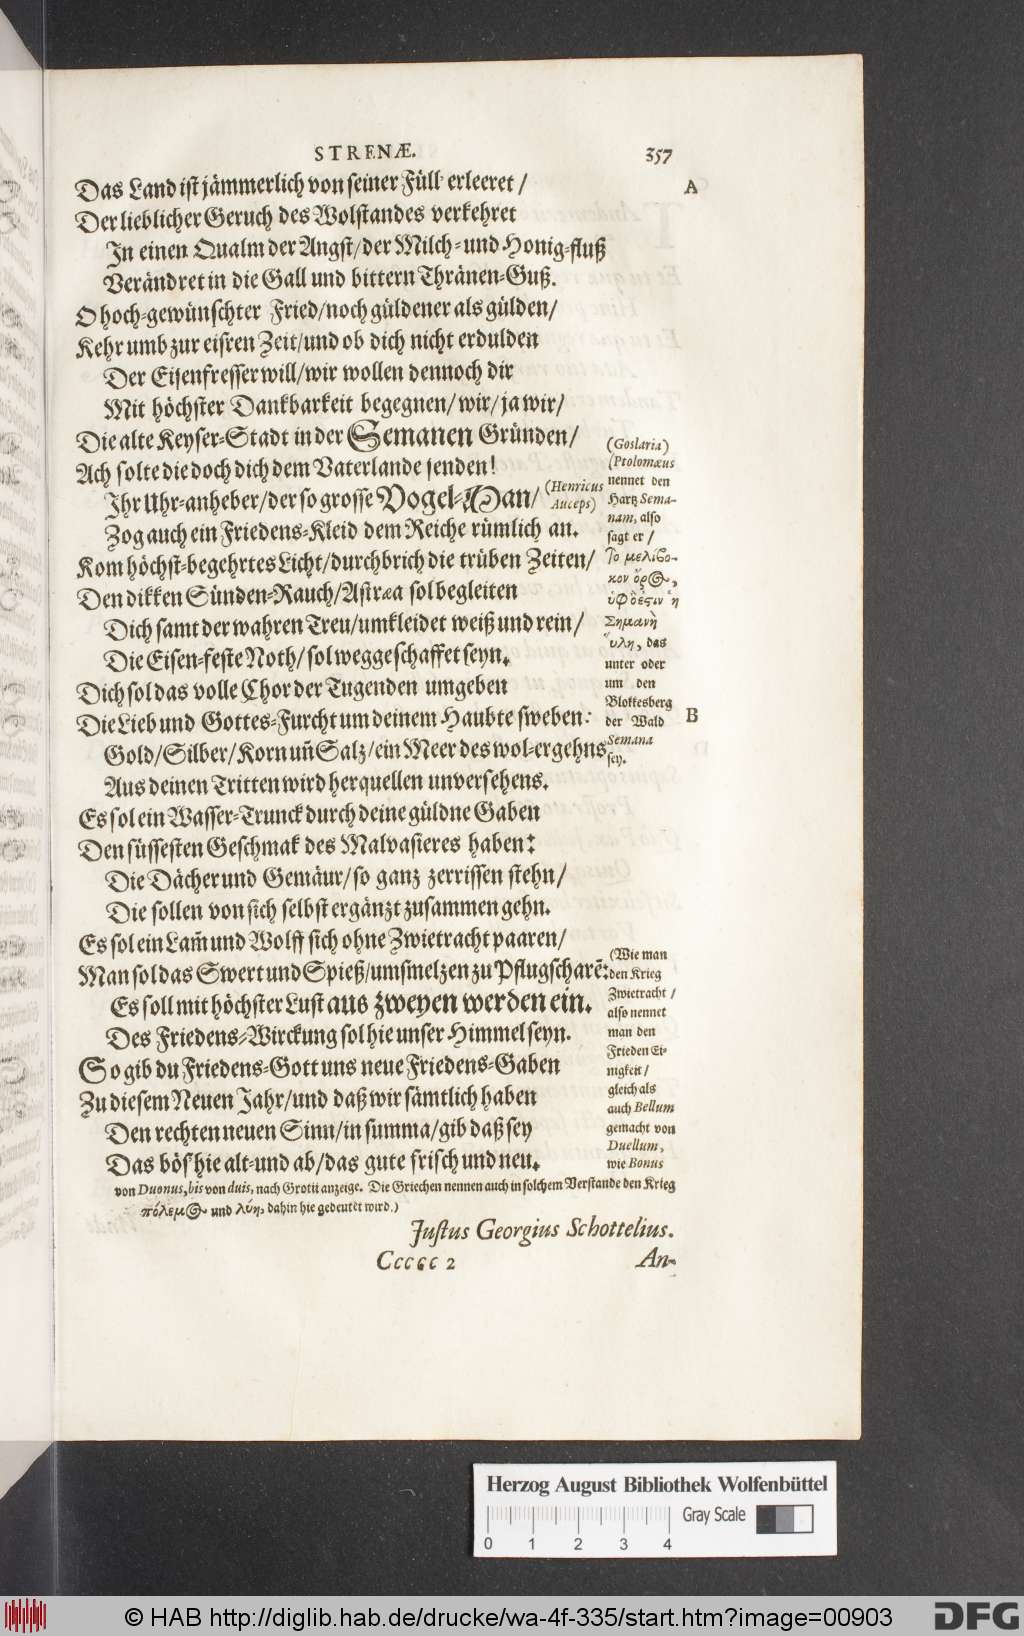 STRENÆ. 357
Das Land ist jämmerlich von seiner Füll' erleeret / A
Der lieblicher Geruch des Wolstandes verkehret
In einen Qualm der Angst / der Milch- und Honig-fluß
Verändret in die Gall und bittern Thränen-Guß.
O hoch-gewünschter Fried / noch güldener als gülden /
Kehr umb zur eisren Zeit / und ob dich nicht erdulden
Der Eisenfresser will / wir wollen dennoch dir
Mit höchster Dankbarkeit begegnen / wir / ja wir /
Die alte Keyser-Stadt in der Semanen Gründen /
Ach solte die doch dich dem Vaterlande senden!
Ihr Uhr-anheber / der so grosse Vogel-Man /
Zog auch ein Friedens-Kleid dem Reiche rümlich an.
Kom höchst-begehrtes Licht / durchbrich die trüben Zeiten /
Den dikken Sünden-Rauch / Astræa sol begleiten
Dich samt der wahren Treu / umkleidet weiß und rein /
Die Eisen-feste Noht / sol weggeschaffet seyn.
Dich sol das volle Chor der Tugenden umgeben
Die Lieb und Gottes-Furcht um deinem Haubte sweben: B
Gold / Silber / Korn uñ Salz / ein Meer des wol-ergehns
Aus deinen Tritten wird herquellen unversehens.
Es sol ein Wasser-Trunck durch deine güldne Gaben
Den süssesten Geschmak des Malvasieres haben:
Die Dächer und Gemäur / so ganz zerrissen stehn /
Die sollen von sich selbst ergänzt zusammen gehn.
Es sol ein Lam̃ und Wolff sich ohne Zwietracht paaren /
Man sol das Swert und Spieß / umsmelzen zu Pflugscharẽ:
Es soll mit höchster Lust aus zweyen werden ein.
Des Friedens-Wirckung sol hie unser Himmel seyn.
So gib du Friedens-Gott uns neue Friedens-Gaben
Zu diesem Neuen Jahr / und daß wir sämtlich haben
Den rechten neuen Sinn / in summa / gib daß sey
Das bös' hie alt- und ab / das gute frisch und neu.
(Henricus
Auceps)
(Goslaria)
(Ptolomæus
nennet den
Hartz Sema-
nam, also
sagt er /
Το μελίβο-
κον ὄρος,
ὑφ' ὃ ἐςιν ἡ
Σημανὴ
ὕλη, das
unter oder
um den
Blokkesberg
der Wald
Semana
sey.
(Wie man
den Krieg
Zwietracht /
also nennet
man den
Frieden Ei-
nigkeit /
gleich als
auch Bellum
gemacht von
Duellum,
wie Bonus
von Duonus, bis von duis, nach Grotii anzeige. Die Griechen nennen auch in solchem Verstande den Krieg
πόλεμος und λύη, dahin hie gedeutet wird.)
Justus Georgius Schottelius.
Ccccc 2 An-
Herzog August Bibliothek Wolfenbüttel
Gray Scale
0 1 2 3 4
© HAB http://diglib.hab.de/drucke/wa-4f-335/start.htm?image=00903
DFG